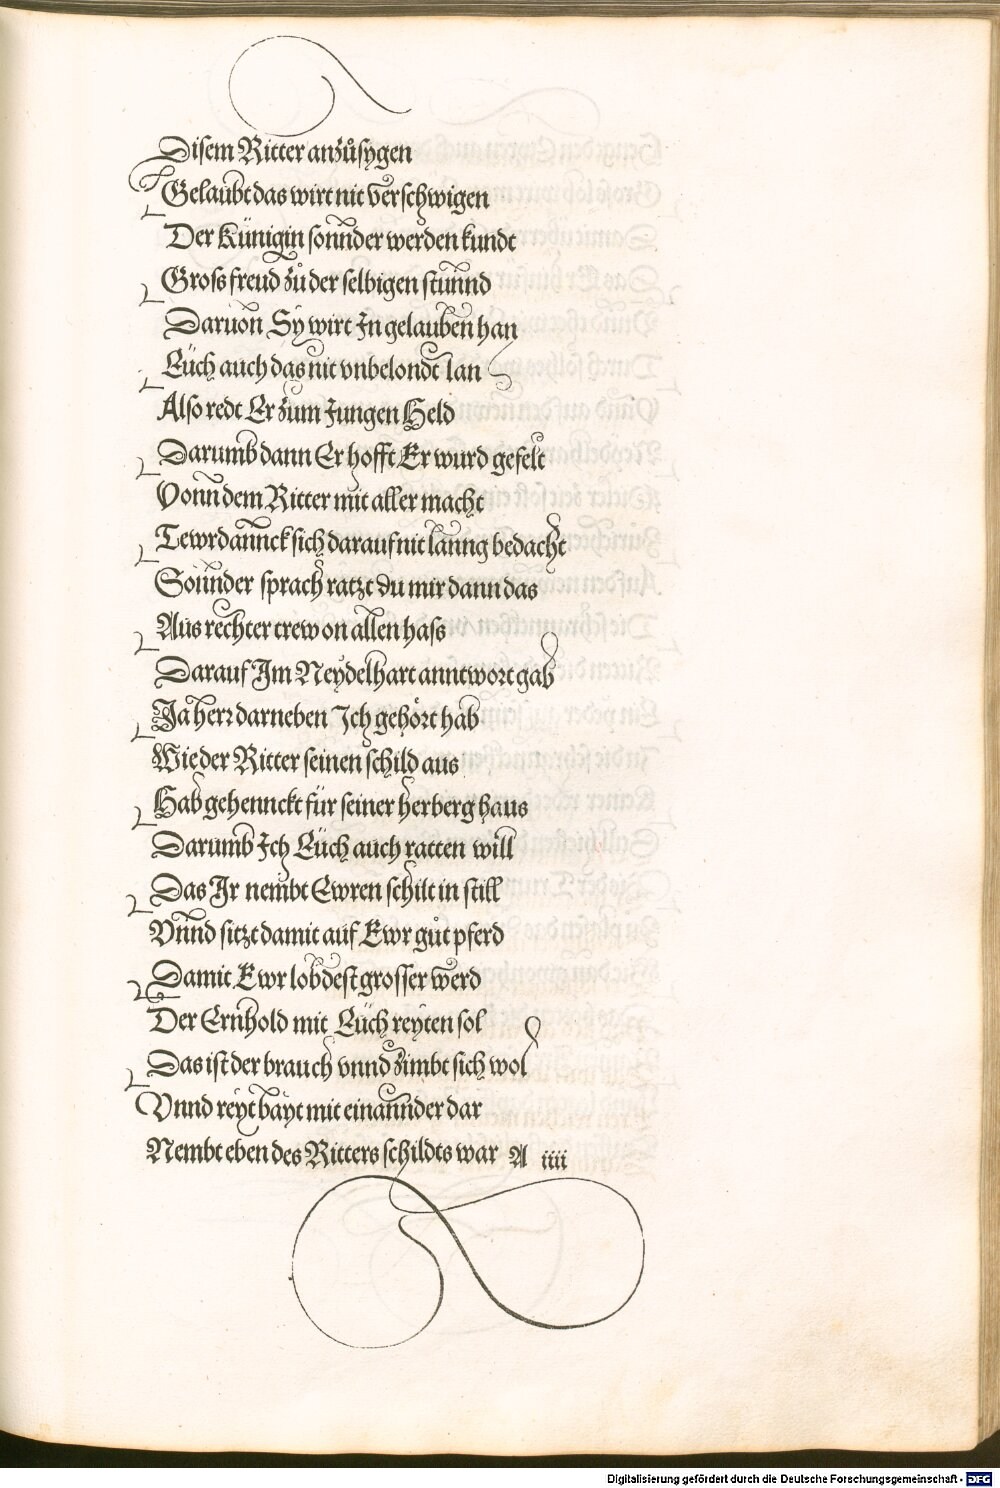 Disem Ritter anzůsygen
Gelaubt das wirt nit verschwigen
Der Künigin sonnder werden kundt
Gross freud zů der selbigen stunnd
Daruon Sy wirt In gelauben han
Eüch auch das nit vnbelondt lan
Also redt Er zum Jungen Held
Darumb dann Er hofft Er wurd gefelt
Vonn dem Ritter mit aller macht
Tewrdannck sich darauf nit lanng bedacht
Sonnder sprach ratzt du mir dann das
Aus rechter trew on allen hass
Darauf Im Neydelhart anntwort gab
Ja herr darneben Ich gehört hab
Wie der Ritter seinen schild aus
Hab gehennckt für seiner herberg haus
Darumb Ich Eüch auch ratten will
Das Ir nembt Ewren schilt in still
Vnnd sitzt damit auf Ewr gůt pferd
Damit Ewr lob dest grosser werd
Der Ernhold mit Eüch reyten sol
Das ist der brauch vnnd zimbt sich wol
Vnnd reyt bayt mit einannder dar
Nembt eben des Ritters schildts war A iiii
Digitalisierung gefördert durch die Deutsche Forschungsgemeinschaft - DFG